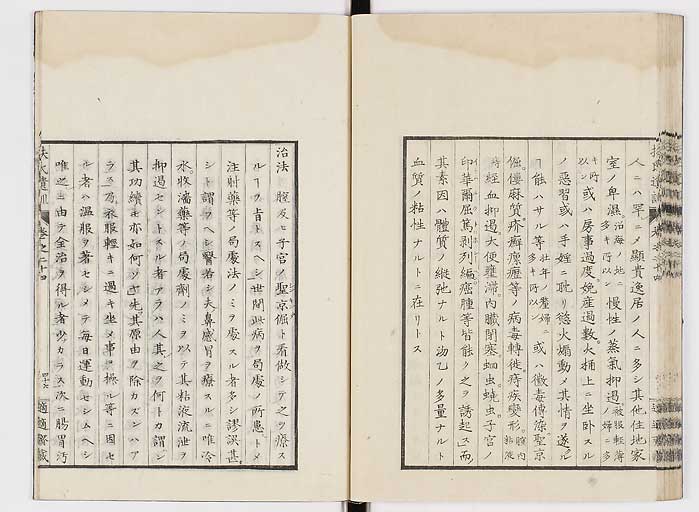 人ニハ罕ニメ顯貴逸居ノ人ニ多シ其他住地家
室ノ卑濕。沿海ノ地ニ多キ所以ン慢性ノ蒸氣抑過衣服輕薄ノ婦ニ多
キ所以ン或ハ房事過度娩産過數。火桶上ニ坐卧スル
ノ惡習或ハ手婬ニ耽リ慾火煽動メ其情ヲ遂ル
ヿ能ハサル等壮年ノ孀婦ニ多キ所以ン或ハ黴毒傳染聖京
倔僂麻質。疥癬瘰癧等ノ病毒轉徙。痔疾變形腟内粘液
時經血抑過大便壅滞。内臓閉塞蛔虫蟯虫。子宮ノ
印華爾屈篤剥列編癌腫等皆能ク之ヲ誘起ス而
其素因ハ體質ノ縱弛ナルト沕乙ノ多量ナルト
血質ノ粘性ナルトニ在リトス
治法 腟及ヒ子宮ノ聖京倔ト看做シテ之ヲ療ス
ルヿヲ肯トスヘシ世間此病ヲ局處ノ所患トメ
注射藥等ノ局處法ノミヲ處スル者多シ謬誤甚
シト謂ヲヘシ譬若シ夫鼻感冒ヲ療スルニ唯冷
水。收濇藥等ノ局處劑ノミヲ以テ其粘液流泄ヲ
抑過セシトスル者アラハ人其之ヲ何トカ謂ン
其功績モ亦如何ソヤ先其原由ヲ除カズンハア
ラス乃衣服輕キニ過キ坐メ事ヲ操ル等ニ因セ
ル者ハ温服ヲ著セシメテ毎日運動セシムヘシ
唯之ニ由テ全治ヲ得ル者少カラス次ニ腸胃汚
扶氏遺訓 卷之二十四
四十六 適適齋藏